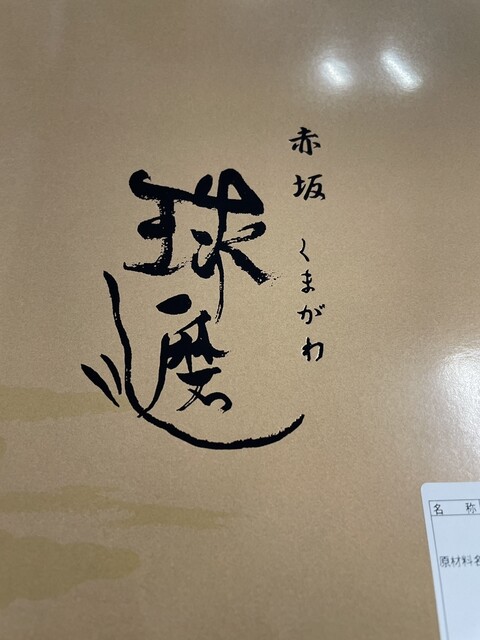 赤坂 くまがわ
球磨
名 称
原材料名